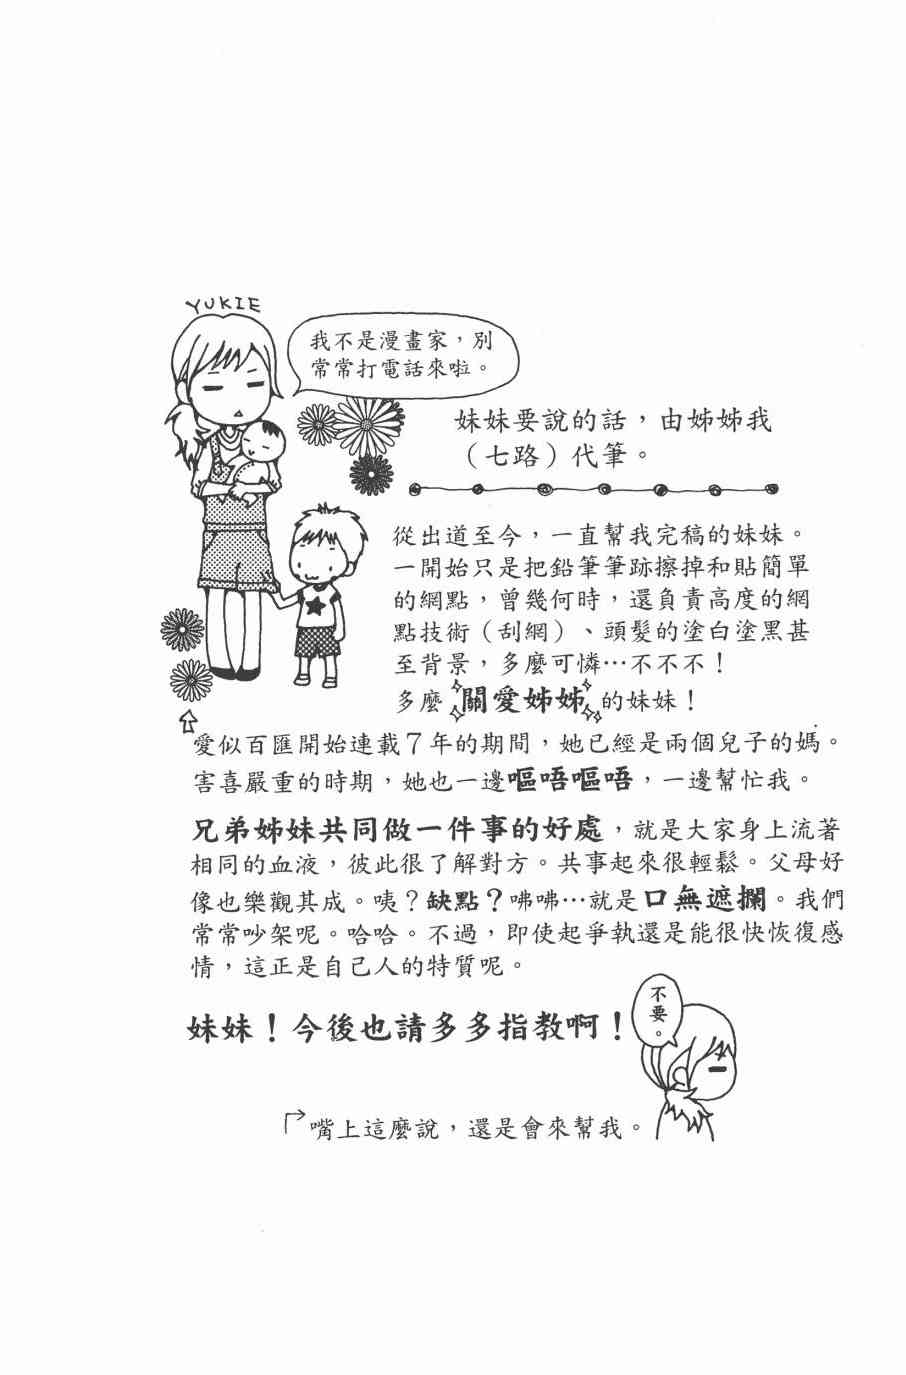 YUKIE
我不是漫畫家，別
常常打電話來啦。
妹妹要說的話，由姊姊我
（七路）代筆。
從出道至今，一直幫我完稿的妹妹。
一開始只是把鉛筆筆跡擦掉和貼簡單
的網點，曾幾何時，還負責高度的網
點技術（刮網）、頭髮的塗白塗黑甚
至背景，多麼可憐…不不不！
多麼關愛姊姊的妹妹！
愛似百匯開始連載7年的期間，她已經是兩個兒子的媽。
害喜嚴重的時期，她也一邊嘔唔嘔唔，一邊幫忙我。
兄弟姊妹共同做一件事的好處，就是大家身上流著
相同的血液，彼此很了解對方。共事起來很輕鬆。父母好
像也樂觀其成。咦？缺點？咈咈…就是口無遮攔。我們
常常吵架呢。哈哈。不過，即使起爭執還是能很快恢復感
情，這正是自己人的特質呢。
妹妹！今後也請多多指教啊！
不要。
嘴上這麼說，還是會來幫我。